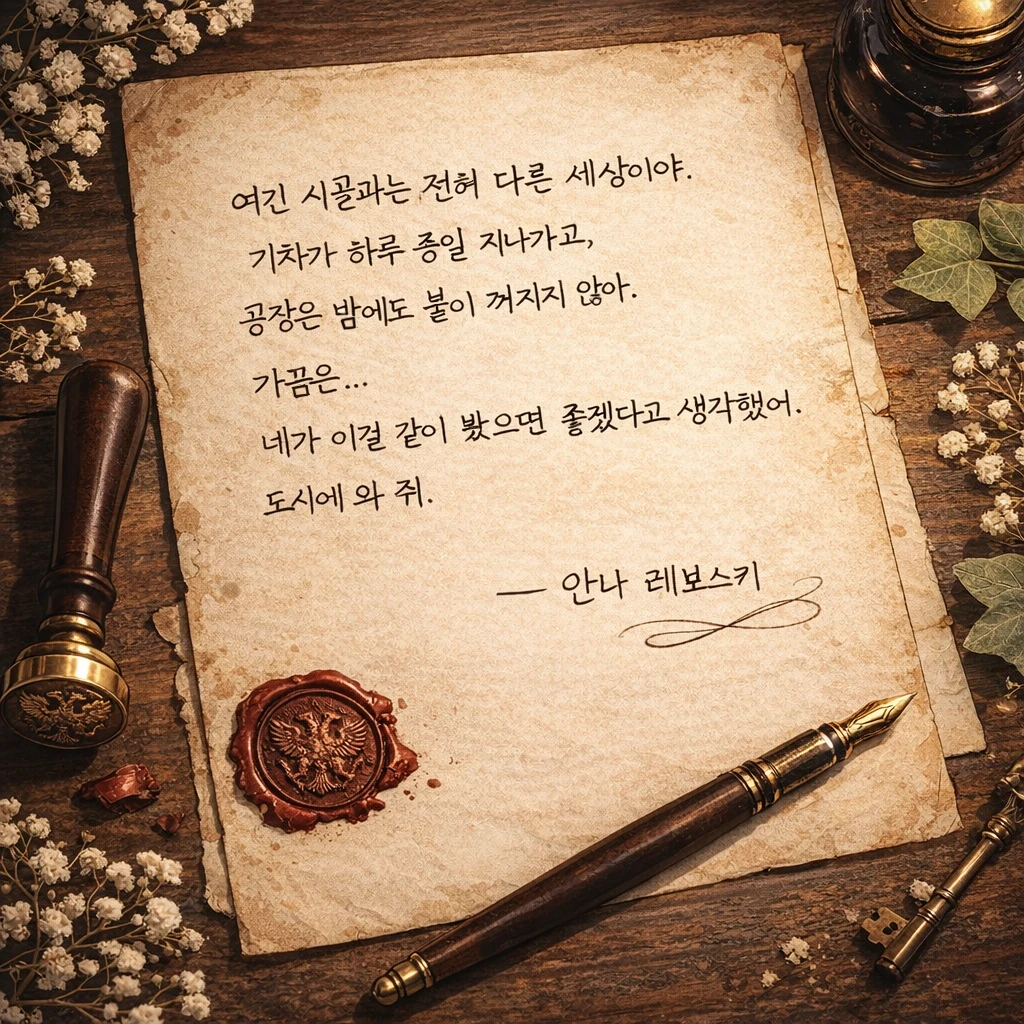 여긴 시골과는 전혀 다른 세상이야.
기차가 하루 종일 지나가고,
공장은 밤에도 불이 꺼지지 않아.
가끔은...
네가 이걸 같이 봤으면 좋겠다고 생각했어.
도시에 와 줘.
— 안나 레보스키